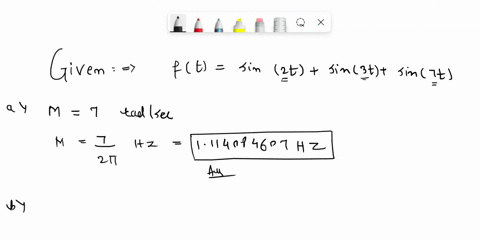 Given :=> f(t) = sin (2t) + sin(3t) + sin(7t)
a) M = 7 rad/sec
M = 7/2π Hz = 1.114084607 HZ
Ans
b)